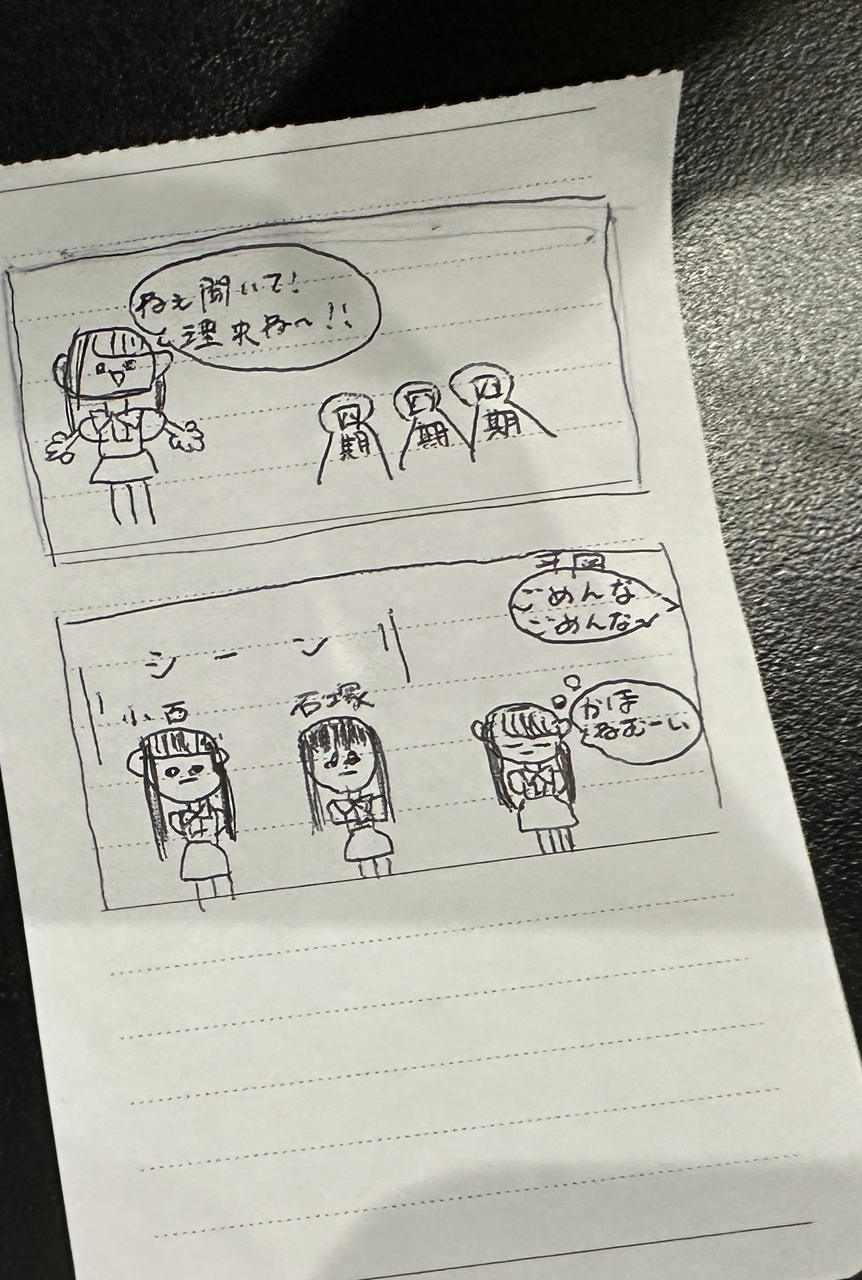 ねえ聞いて!
理央ね〜!!
四期
四期
四期
シーン
小西
石塚
平岡
ごめんな
ごめんな〜
かほ
ねむーい